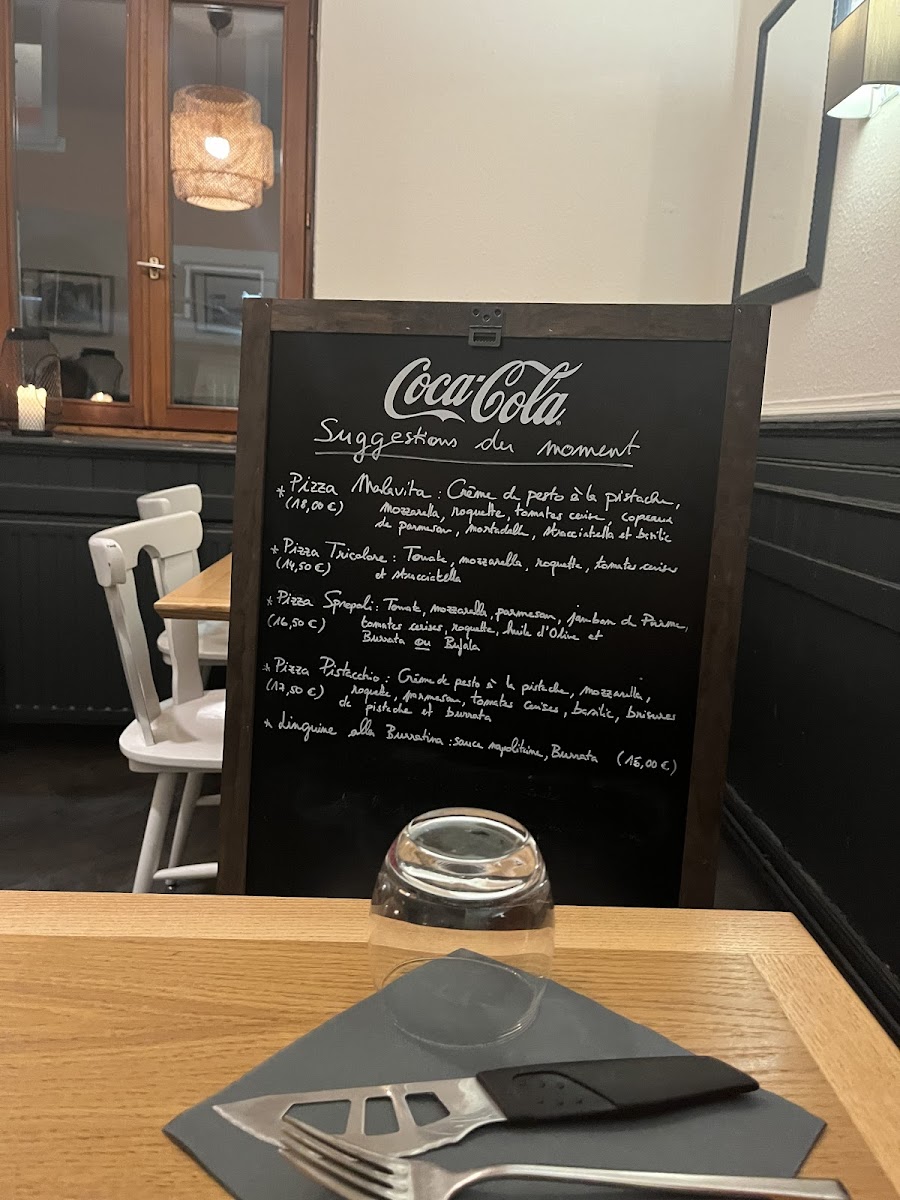 Coca-Cola
Suggestions du moment
* Pizza Malavita : Crème de pesto à la pistache,
(18,00 €) mozzarella, roquette, tomates cerise, copeaux
de parmesan, mortadelle, stracciatella et basilic
* Pizza Tricolore : Tomate, mozzarella, roquette, tomates cerises
(14,50 €) et stracciatella
* Pizza Sprepoli : Tomate, mozzarella, parmesan, jambon de Parme,
(16,50 €) tomates cerises, roquette, huile d'Olive et
Burrata ou Bufala
* Pizza Pistacchio : Crème de pesto à la pistache, mozzarella,
(17,50 €) roquette, parmesan, tomates cerises, basilic, brisures
de pistache et burrata
* Linguine alla Burratina : sauce napolitaine, Burrata (15,00 €)